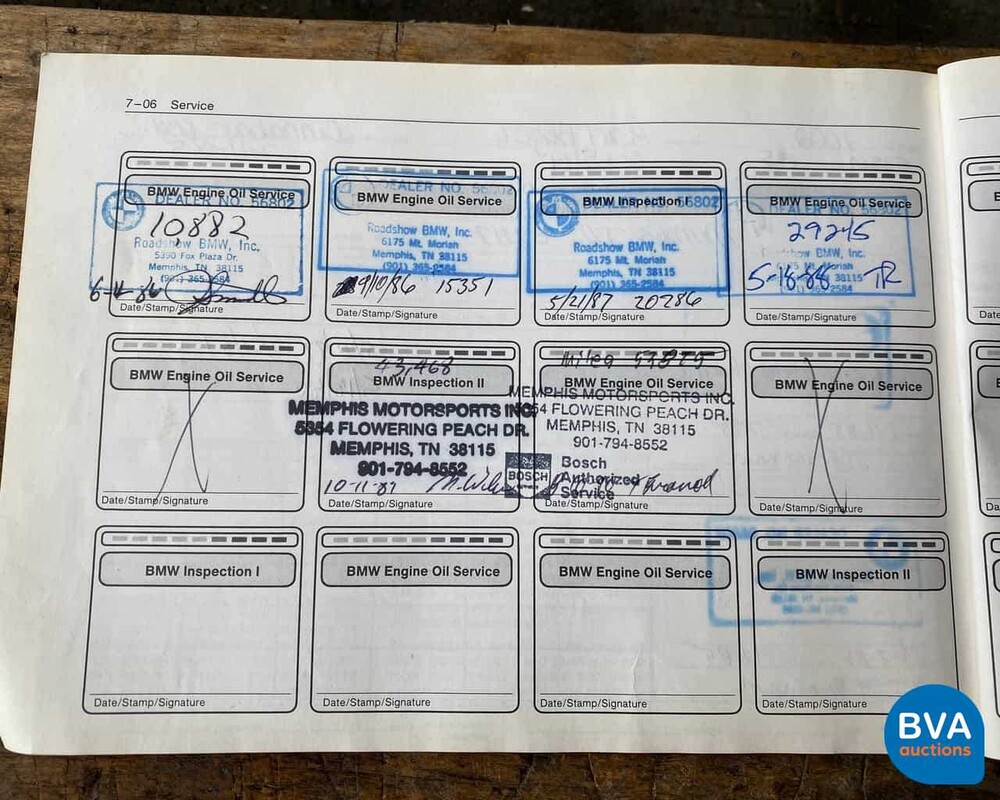 7–06 Service
BMW Engine Oil Service
DEALER NO. 56802
10882
Roadshow BMW, Inc.
5390 Fox Plaza Dr.
Memphis, TN 38115
(901) 365-2584
Date/Stamp/Signature
DEALER NO. 56802
BMW Engine Oil Service
Roadshow BMW, Inc.
6175 Mt. Moriah
Memphis, TN 38115
(901) 365-2584
9/10/86 15351
Date/Stamp/Signature
BMW Inspection I
DEALER NO. 56802
Roadshow BMW, Inc.
6175 Mt. Moriah
Memphis, TN 38115
(901) 365-2584
5/21/87 20286
Date/Stamp/Signature
BMW Engine Oil Service
DEALER NO. 56802
29245
Roadshow BMW, Inc.
Moriah
38115
5-18-88 TR
Date/Stamp/Signature
BMW Engine Oil Service
Date/Stamp/Signature
43,468
BMW Inspection II
MEMPHIS MOTORSPORTS INC.
5354 FLOWERING PEACH DR.
MEMPHIS, TN 38115
901-794-8552
10-11-89
Date/Stamp/Signature
Miles
BMW Engine Oil Service
MEMPHIS MOTORSPORTS INC.
5354 FLOWERING PEACH DR.
MEMPHIS, TN 38115
901-794-8552
BOSCH
Bosch
Authorized
Service
Date/Stamp/Signature
BMW Engine Oil Service
Date/Stamp/Signature
BMW Inspection I
Date/Stamp/Signature
BMW Engine Oil Service
Date/Stamp/Signature
BMW Engine Oil Service
Date/Stamp/Signature
BMW Inspection II
Date/Stamp/Signature
BVA
auctions